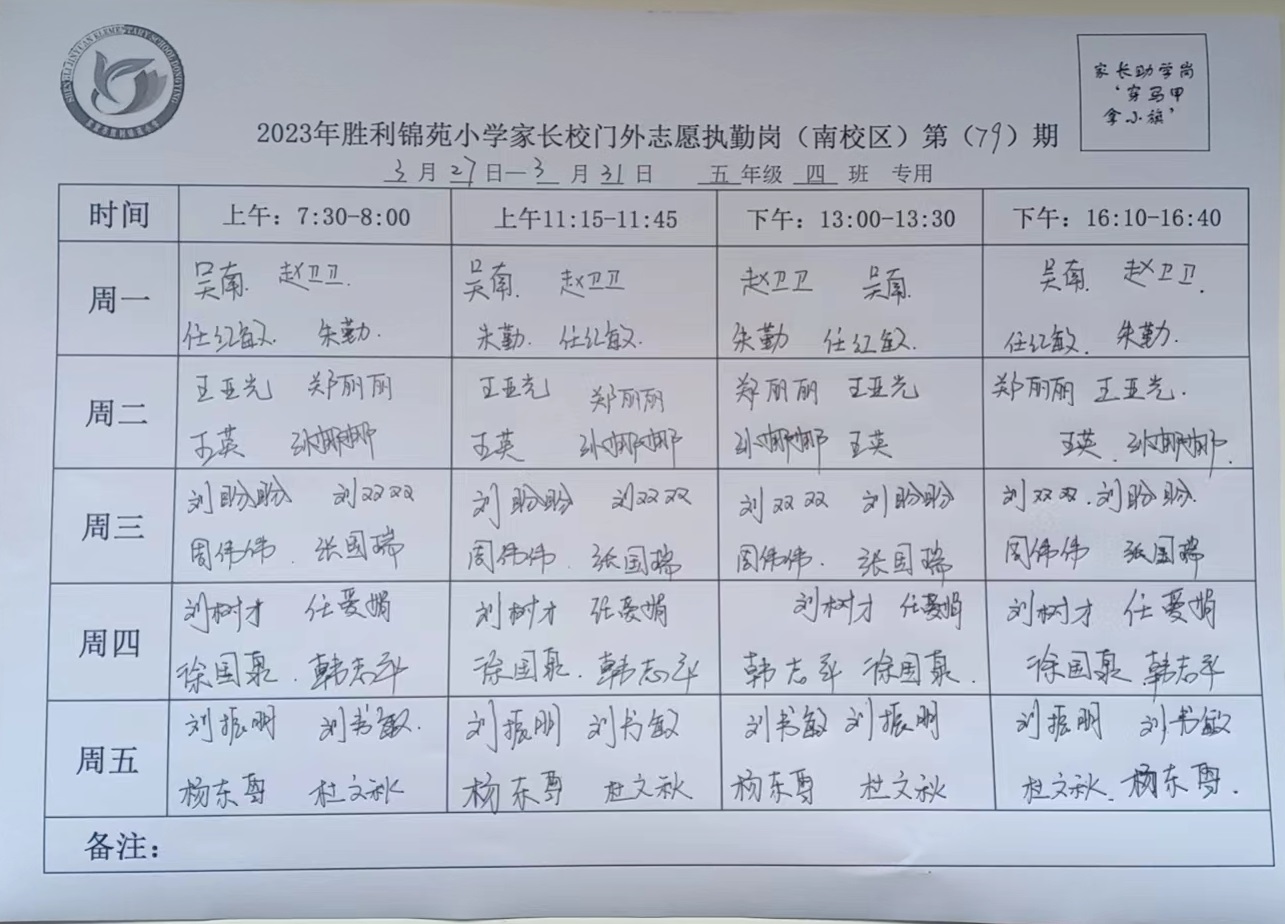 SHENGLI JINYUAN ELEMENTARY SCHOOL DONGYING
家长助学岗
‘穿马甲
拿小旗’
2023年胜利锦苑小学家长校门外志愿执勤岗（南校区）第（79）期
3月27日—3月31日 五年级 四 班 专用
时间 上午：7:30-8:00 上午11:15-11:45 下午：13:00-13:30 下午：16:10-16:40
周一
吴南. 赵卫卫. 吴南. 赵卫卫 赵卫卫 吴南. 吴南. 赵卫卫.
任红敏. 朱勤. 朱勤. 任红敏. 朱勤 任红敏. 任红敏. 朱勤.
周二
王亚光 郑丽丽 王亚光 郑丽丽 郑丽丽 王亚光 郑丽丽 王亚光.
王英 孙娜娜 王英 孙娜娜 孙娜娜 王英 王英. 孙娜娜.
周三
刘盼盼 刘双双 刘盼盼 刘双双 刘双双 刘盼盼 刘双双. 刘盼盼.
周伟伟. 张国瑞 周伟伟. 张国瑞 周伟伟. 张国瑞 周伟伟 张国瑞
周四
刘树才 任爱娟 刘树才 任爱娟 刘树才 任爱娟 刘树才 任爱娟
徐国泉. 韩志 徐国泉. 韩志 韩志 徐国泉. 徐国泉 韩志
周五
刘振明 刘书敏. 刘振明 刘书敏 刘书敏 刘振明 刘振明 刘书敏
杨东尊 杜文秋 杨东尊 杜文秋 杨东尊 杜文秋 杜文秋. 杨东尊.
备注：